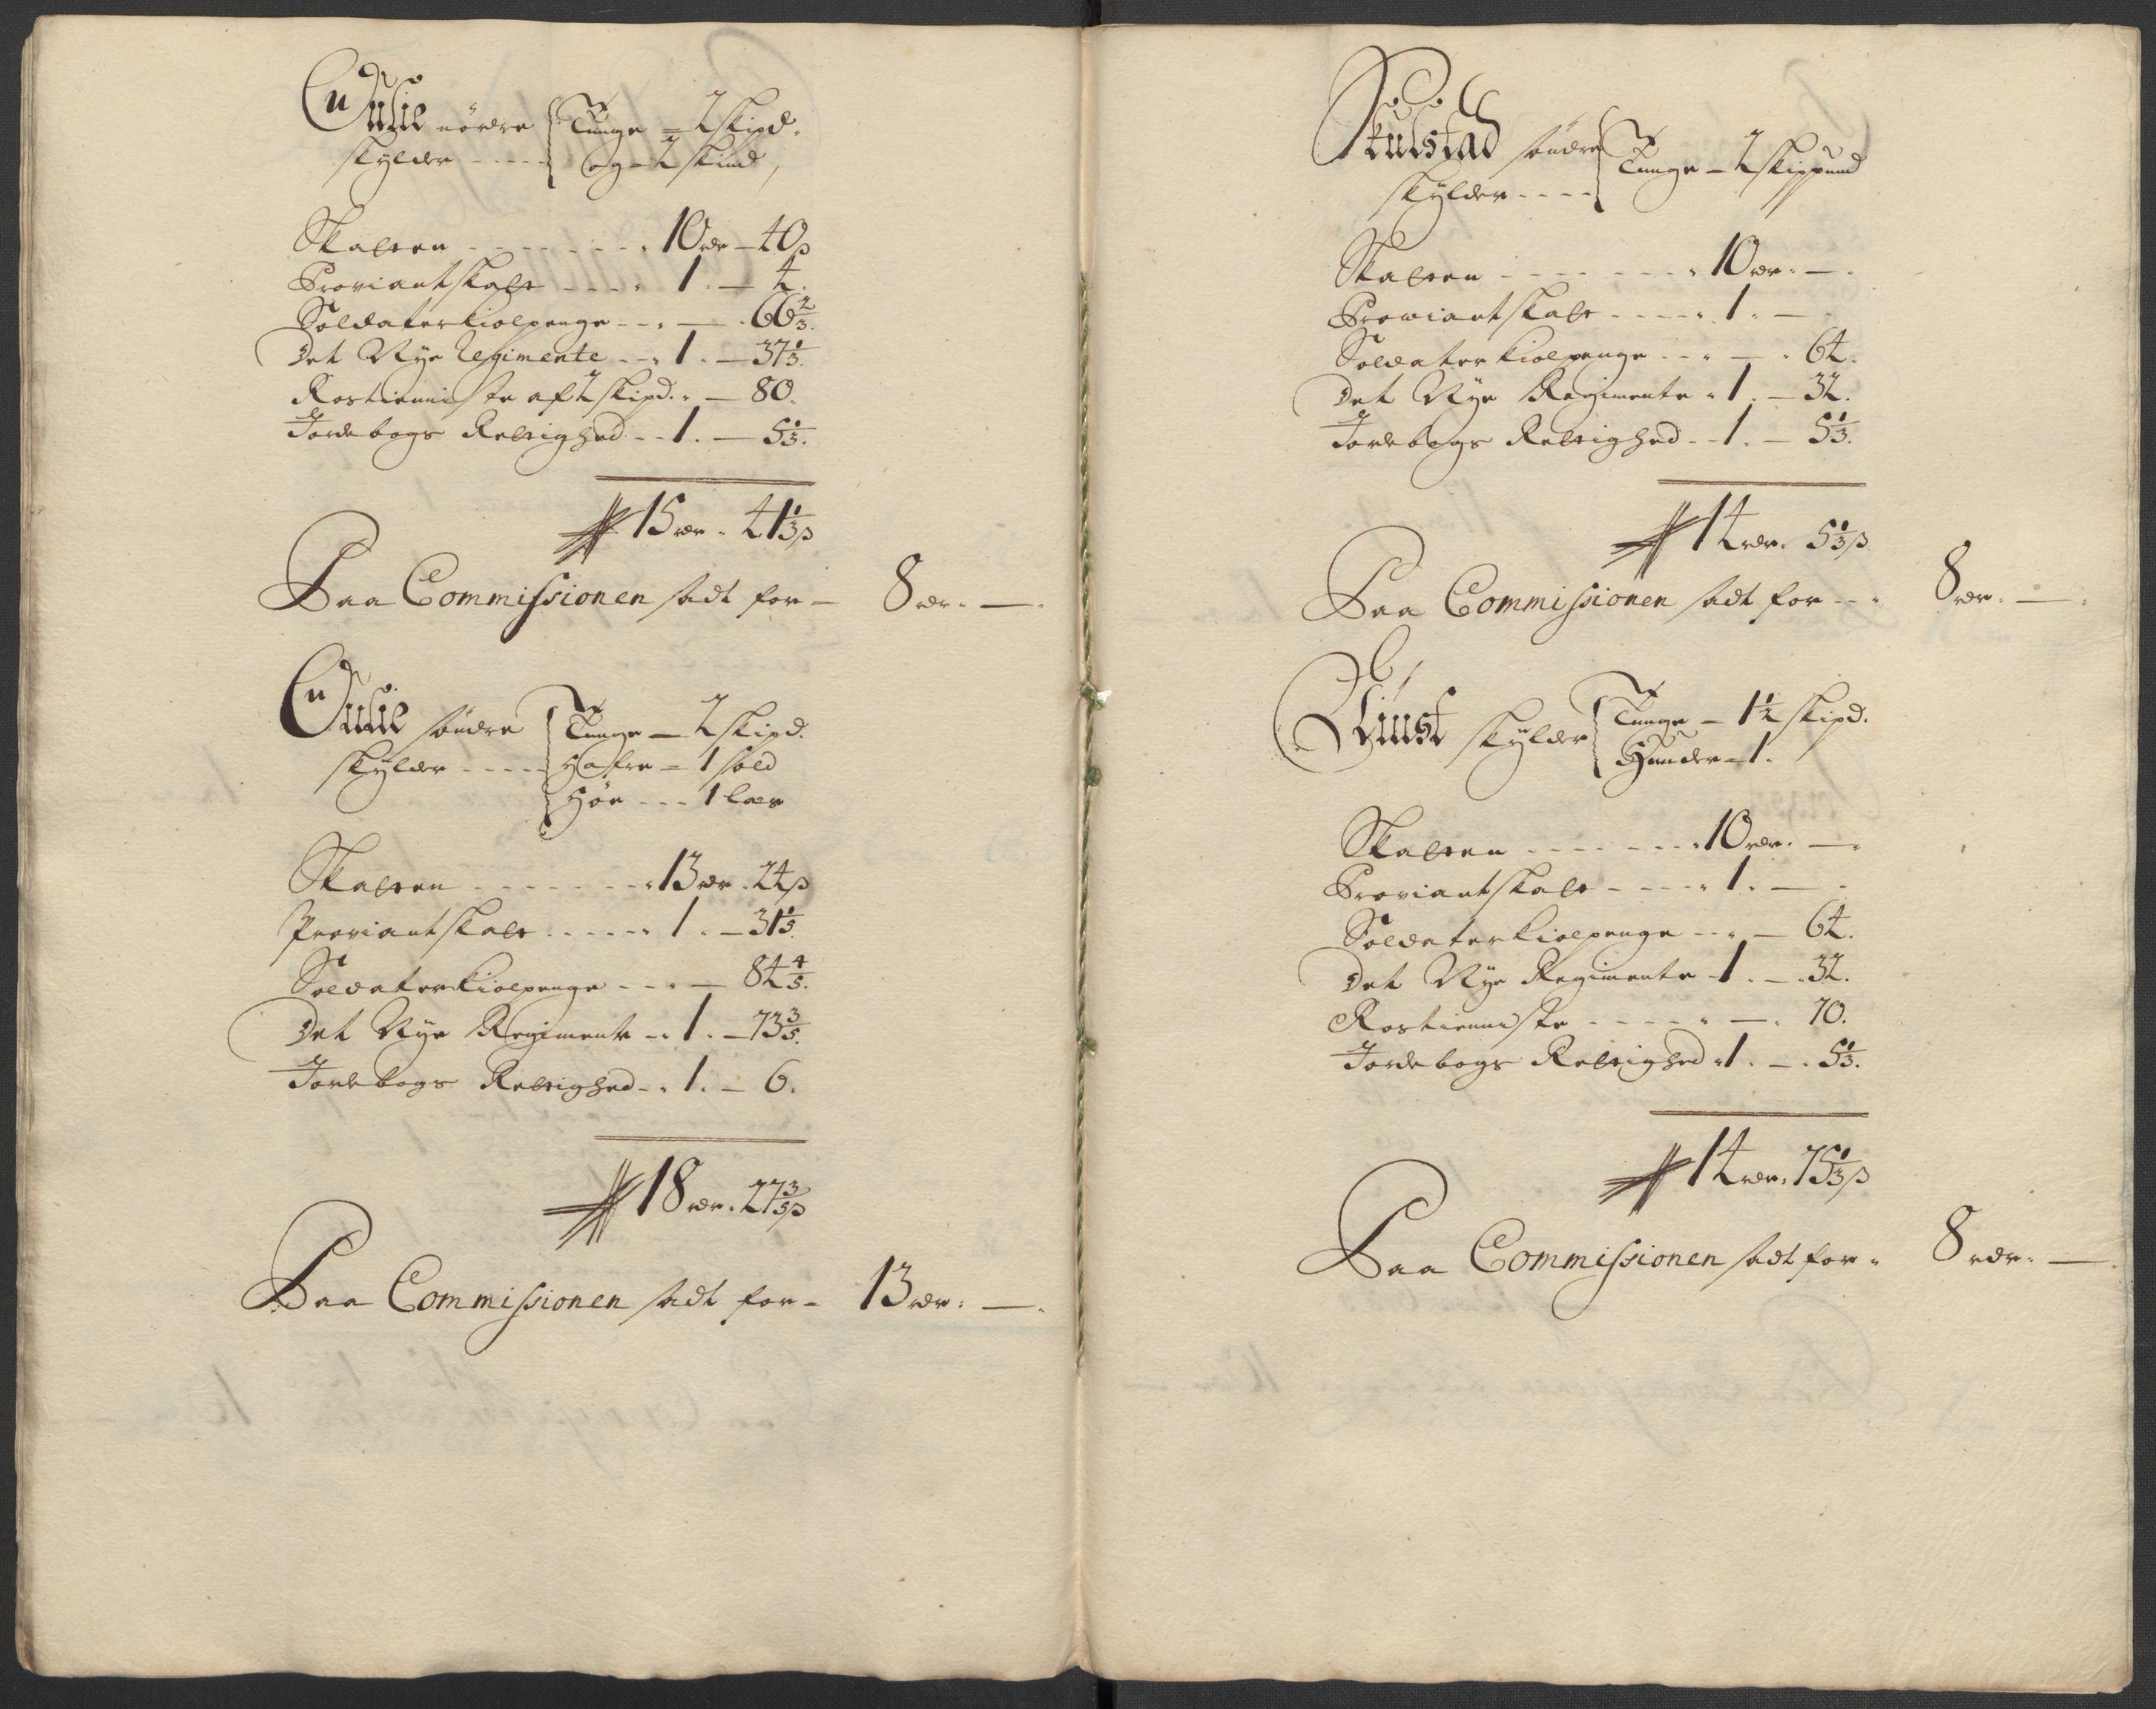 nordre Tunge - 2 skipd.
skylder - - - - og - 2 skind,
Skatten - - - - - - - 10 rdr - 40 ß
Proviantskatt - - - - 1. - 4.
Soldaterkiolpenge - - - — . 66 2/3.
Det Nye Regimente - - 1. - 37 1/3.
Rostienniste af 2 skipd. - 80.
Jordebogs Rettighed - - 1. - 5 1/3.
15 rdr. 41 1/3 ß
Paa Commissionen sadt for - 8 rdr. —.
søndre Tunge - 2 skipd.
skylder - - - - Hafre - 1 sold
Høe - - - 1 læs
Skatten - - - - - - - 13 rdr. 24 ß
Proviantskatt - - - - - 1. - 31 1/5.
Soldaterkiolpenge - - - — 84 4/5.
Det Nye Regimente - - 1. - 73 3/5.
Jordebogs Rettighed - - 1. - 6.
18 rdr. 27 3/5 ß
Paa Commissionen sadt for - 13 rdr. —.
Skulstad søndre Tunge - 2 skippund
skylder - - - -
Skatten - - - - - - - 10 rdr. —.
Prowiantskatt - - - - - 1. —
Soldaterkiolpenge - - - — . 64.
Det Nye Regimente - 1. - 32.
Jordebogs Rettighed - - 1. - 5 1/3.
14 rdr. 5 1/3 ß
Paa Commissionen sadt for - - - 8 rdr. —.
skylder Tunge - 1 1/2 skipd.
Huuder - 1.
Skatten - - - - - - - 10 rdr. —.
Proviantskatt - - - - - 1. — .
Soldaterkiolpenge - - - — 64.
Det Nye Regimente - 1. - . 32.
Rostienniste - - - - - — . 70.
Jordebogs Rettighed - 1. - . 5 1/3.
14 rdr. 75 1/3 ß
Paa Commissionen sadt for - 8 rdr. —.